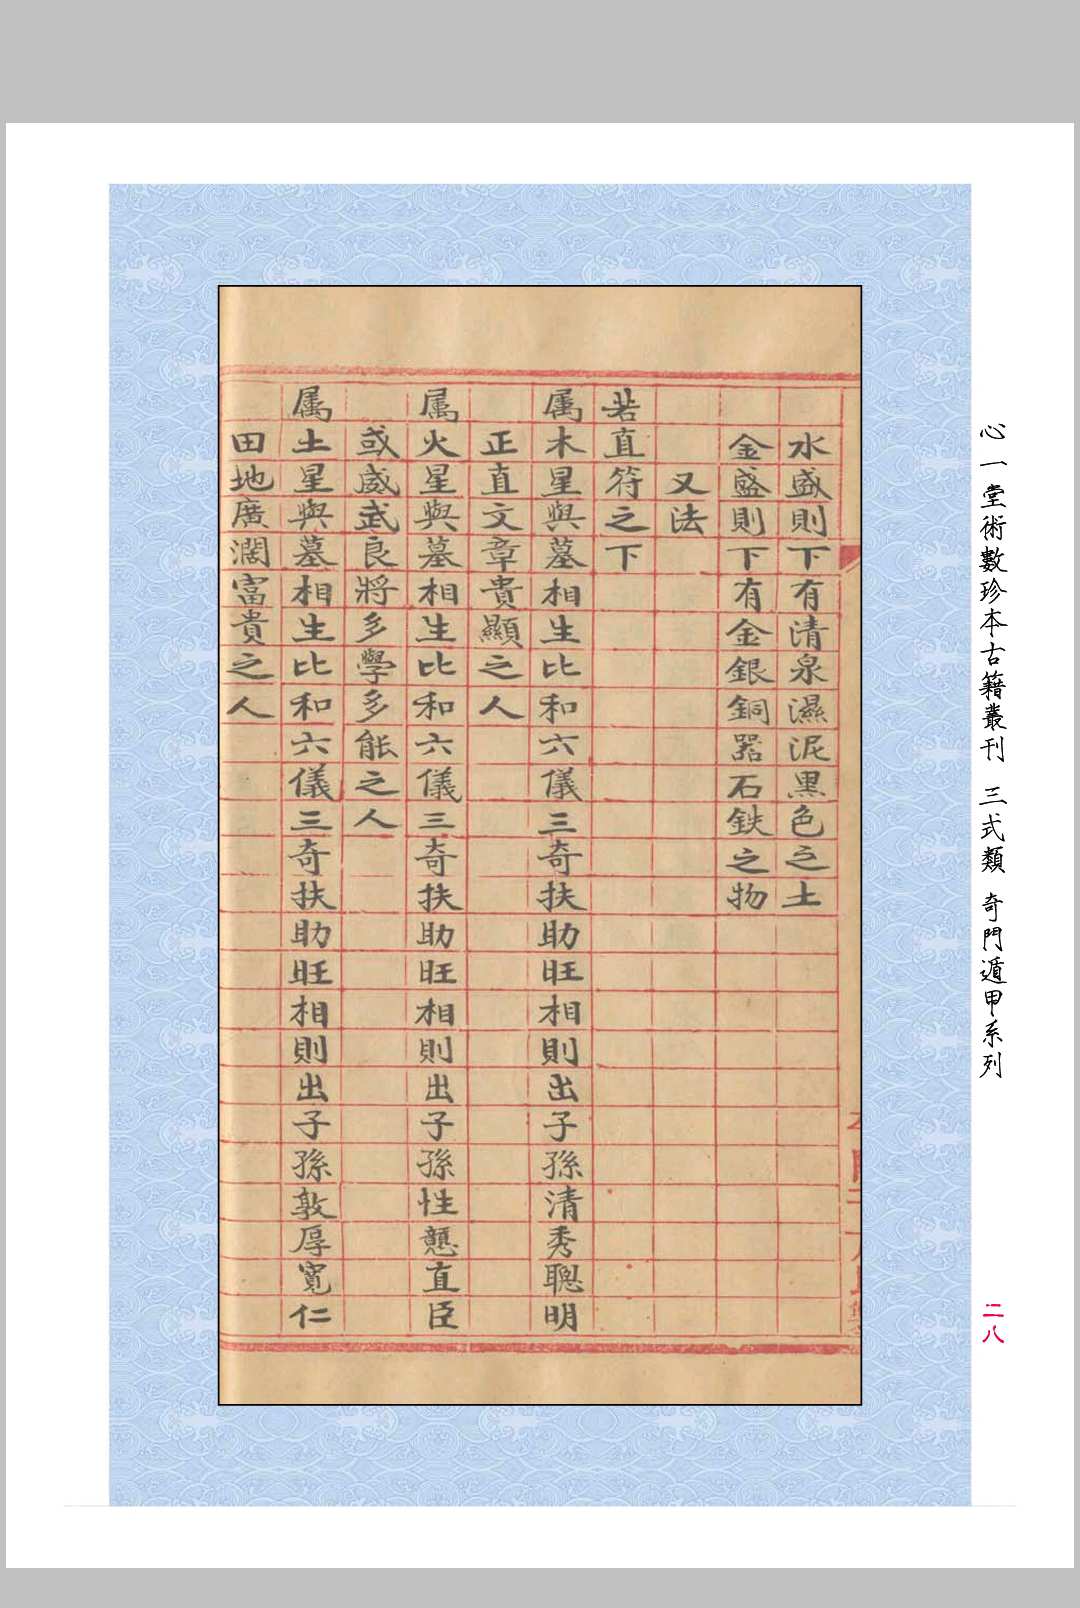 水盛則下有清泉濕泥黑色之土
金盛則下有金銀銅器石鉄之物
又法
若直符之下
属木星與墓相生比和六儀三奇扶助旺相則出子孫清秀聰明
正直文章貴顯之人
属火星與墓相生比和六儀三奇扶助旺相則出子孫性戇直臣
或威武良將多學多能之人
属土星與墓相生比和六儀三奇扶助旺相則出子孫敦厚寬仁
田地廣濶富貴之人
心一堂術數珍本古籍叢刊 三式類 奇門遁甲系列
二八